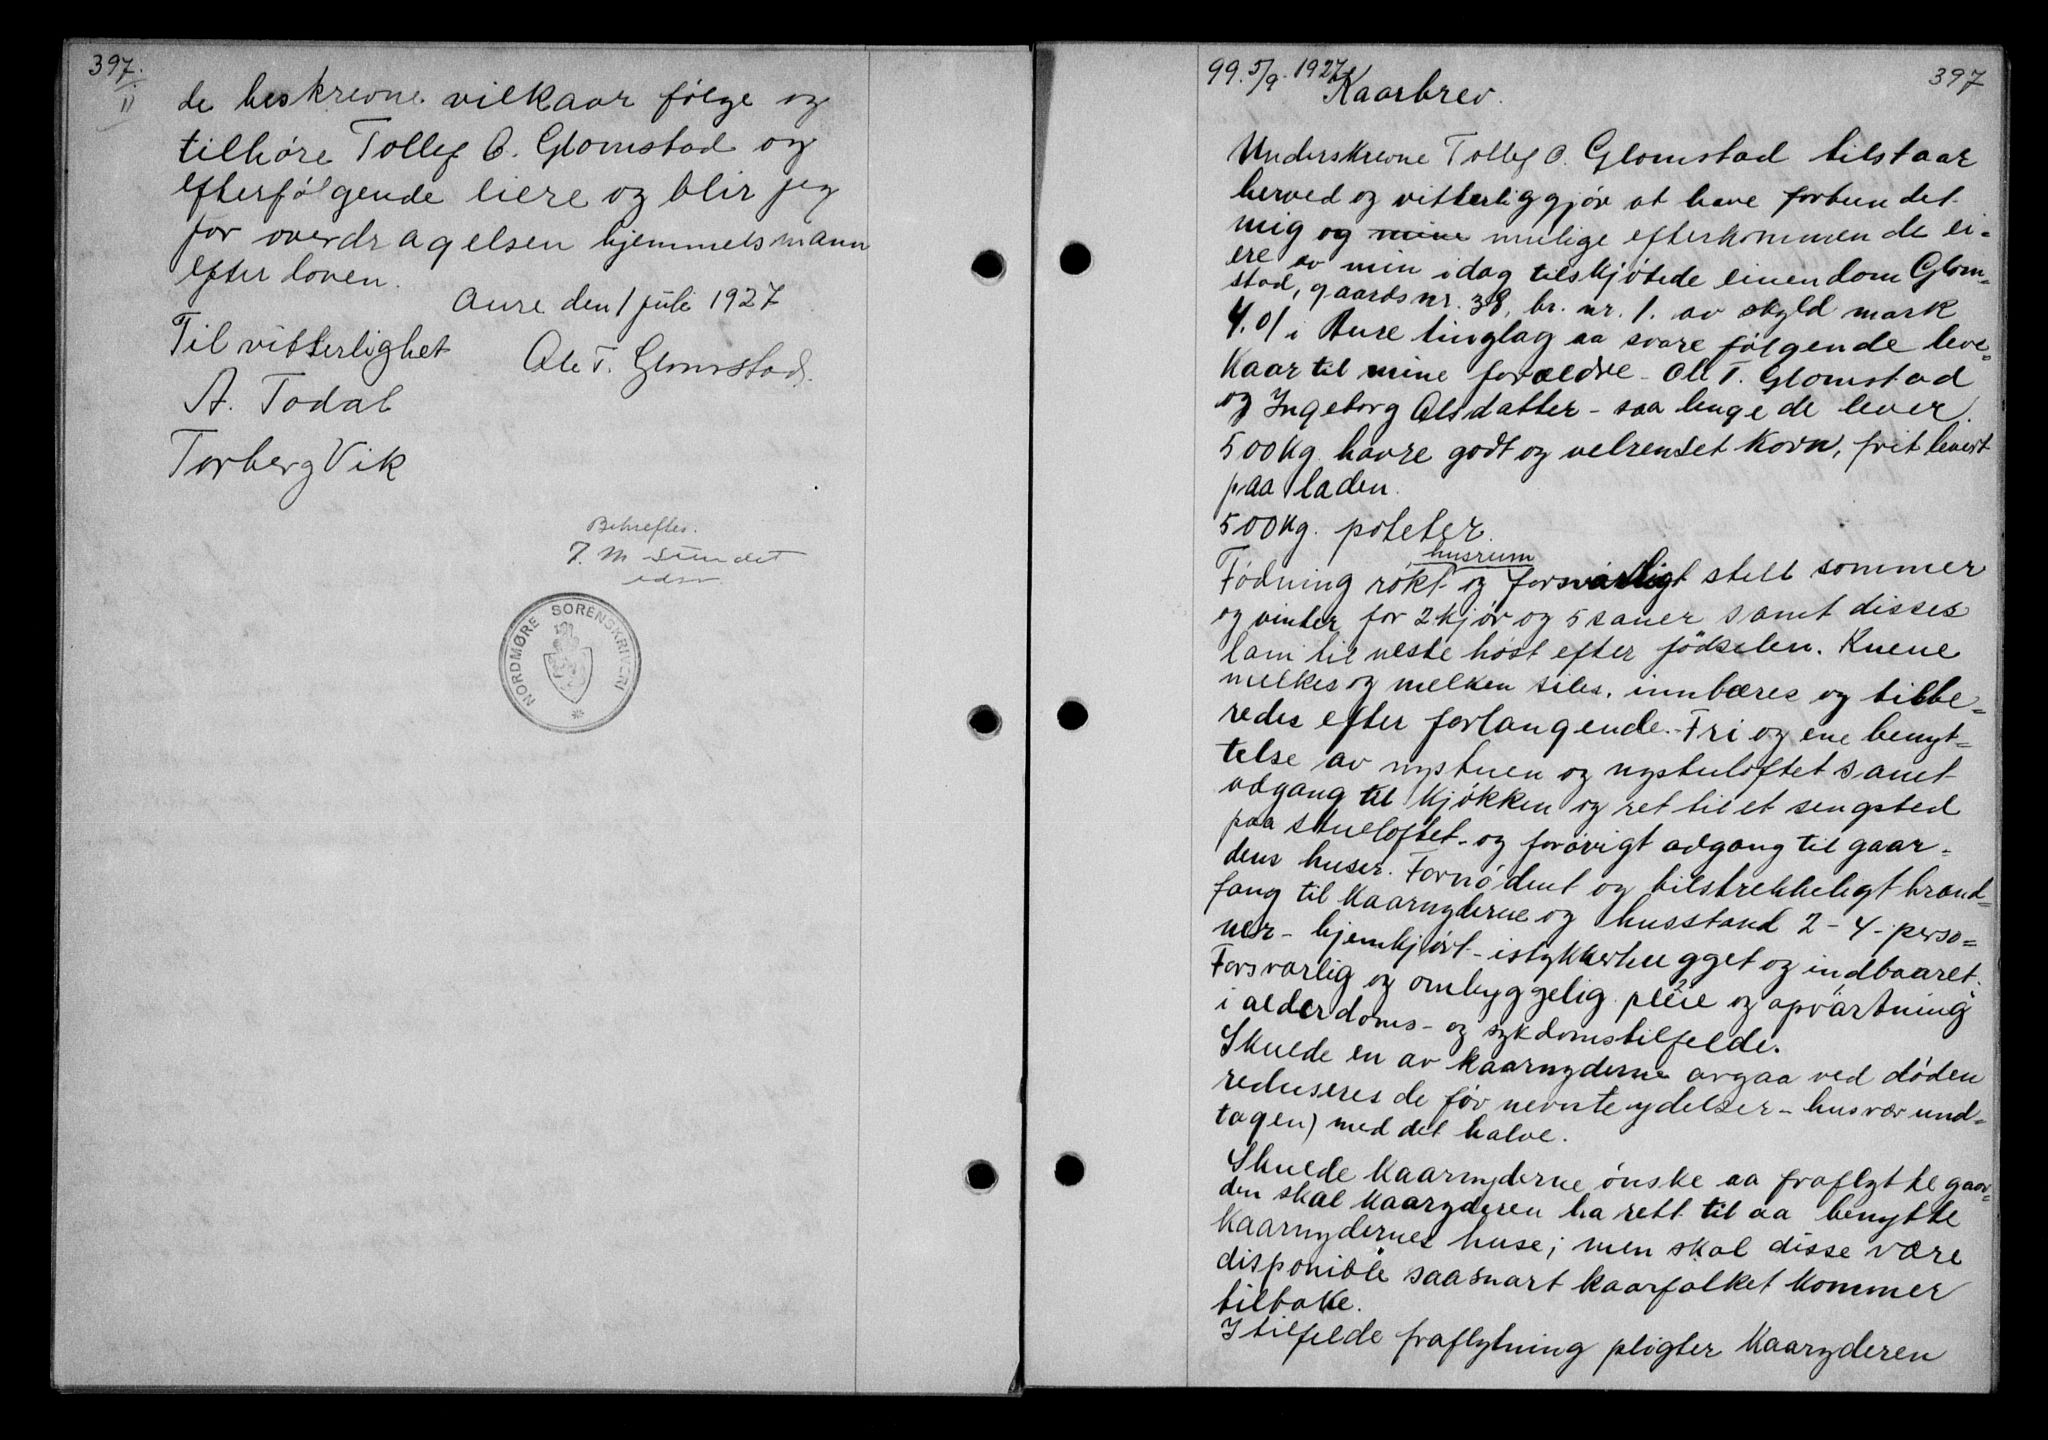 397.
II
de beskrevne vilkaar følge og
tilhøre Tollef O. Glomstad og
efterfølgende eiere og blir jeg
for overdragelsen hjemmelsmann
efter loven.
Aure den 1 juli 1927
Til vitterlighet
Ole T. Glomstad.
A. Todal
Torberg Vik
Bekreftes.
J. M. Sundet
edsv.
NORDMØRE SORENSKRIVERI
99. 5/9. 1927
397
Kaarbrev.
Underskrevne Tollef O. Glomstad tilstaar
herved og vitterliggjør at have forbundet
mig og mine mulige efterkommende ei-
ere av min idag tilskjøtede eiendom Glom-
stad, gaardsnr. 38, br. nr. 1. av skyld mark
4.01 i Aure tinglag aa svare følgende leve-
kaar til mine forældre - Ole T. Glomstad
og Ingeborg Olsdatter - saa lenge de lever.
500 kg. havre godt og velrenset korn, frit levert
paa laden.
500 kg. poteter.
husrum
Fødning røkt og forsvarligt stell sommer
og vinter for 2 kjør og 5 sauer samt disses
lam til neste høst efter fødselen. Kuene
melkes og melken siles, innbæres og tilbe-
redes efter forlangende. - Fri og ene benyt-
telse av nystuen og nystuloftet samt
adgang til kjøkken og ret til et sengsted
paa stueloftet - og forøvrigt adgang til gaar-
dens huser. Fornødent og tilstrekkeligt brænd-
fang til kaarnyderne og husstand 2 - 4 - perso-
ner - hjemkjørt - istykkerhugget og indbaaret.
Forsvarlig og omhyggelig pleie og opvartning
i alderdoms- og sykdomstilfelde.
Skulde en av kaarnyderne avgaa ved døden
reduseres de før nevnte ydelser - husvær und-
tagen) med det halve.
Skulde kaarnyderne ønske aa fraflytte gaar-
den skal kaaryderen ha rett til aa benytte
kaarnydernes huse; men skal disse være
disponible saasnart kaarfolket kommer
tilbake.
I tilfelde fraflytning pligter kaaryderen